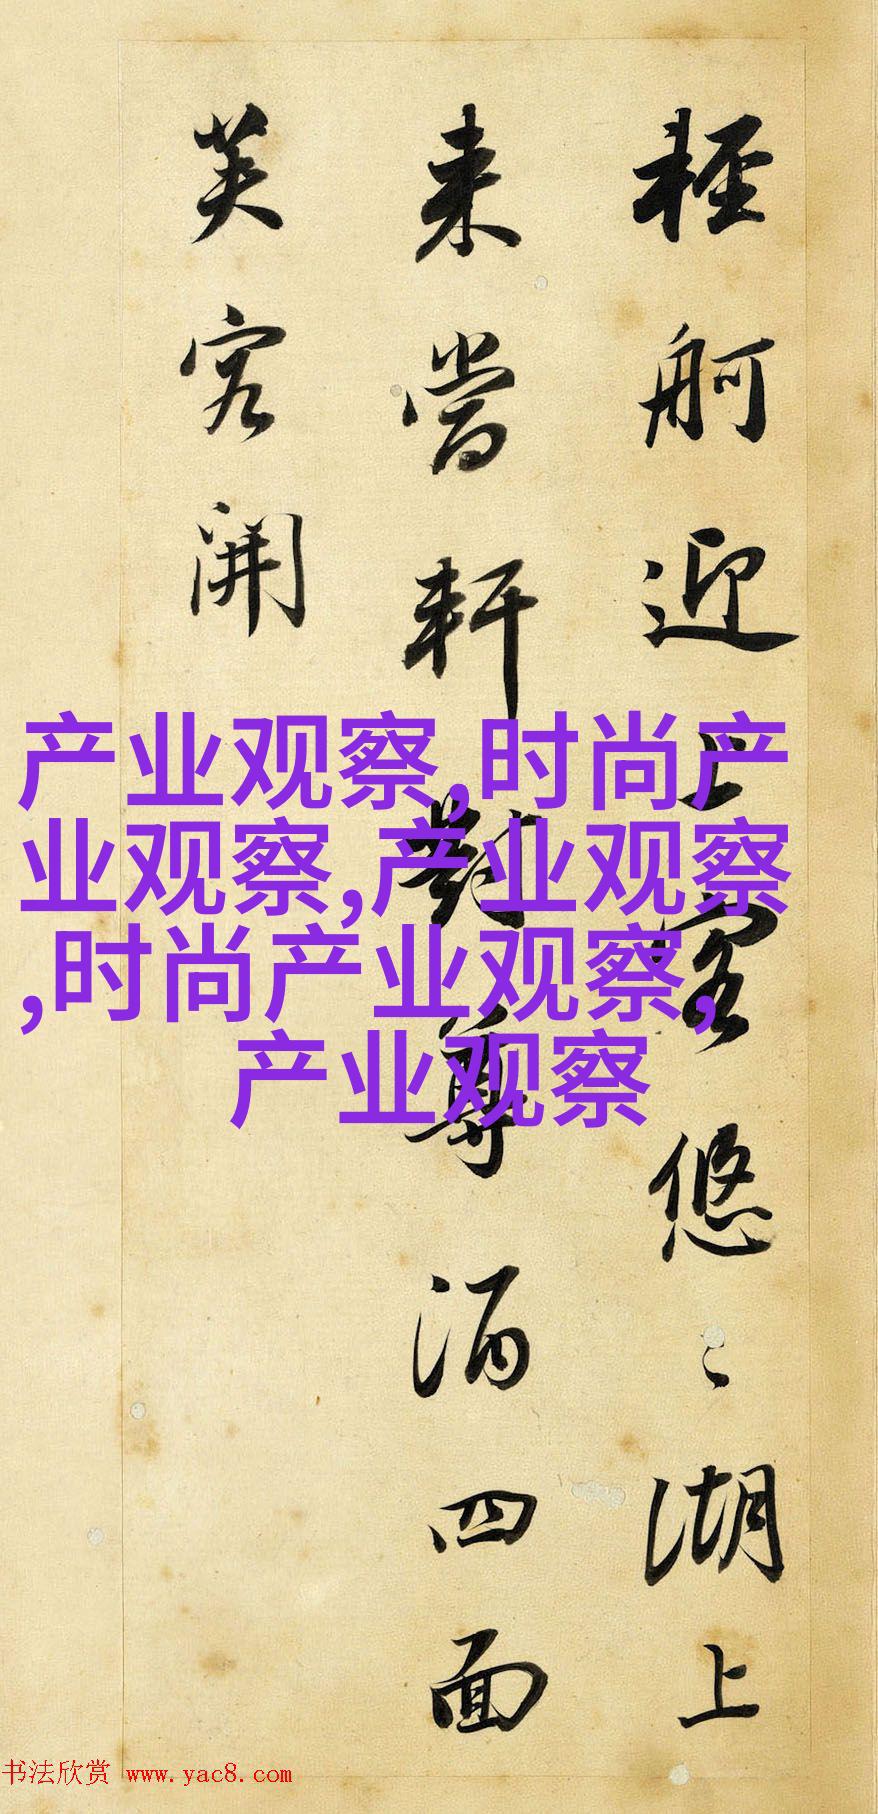 輕舸迎上客悠〻湖上
来當軒對尊酒四面
芙容開
产业观察,时尚产
业观察,产业观察
,时尚产业观察,
产业观察
书法欣赏 www.yac8.com